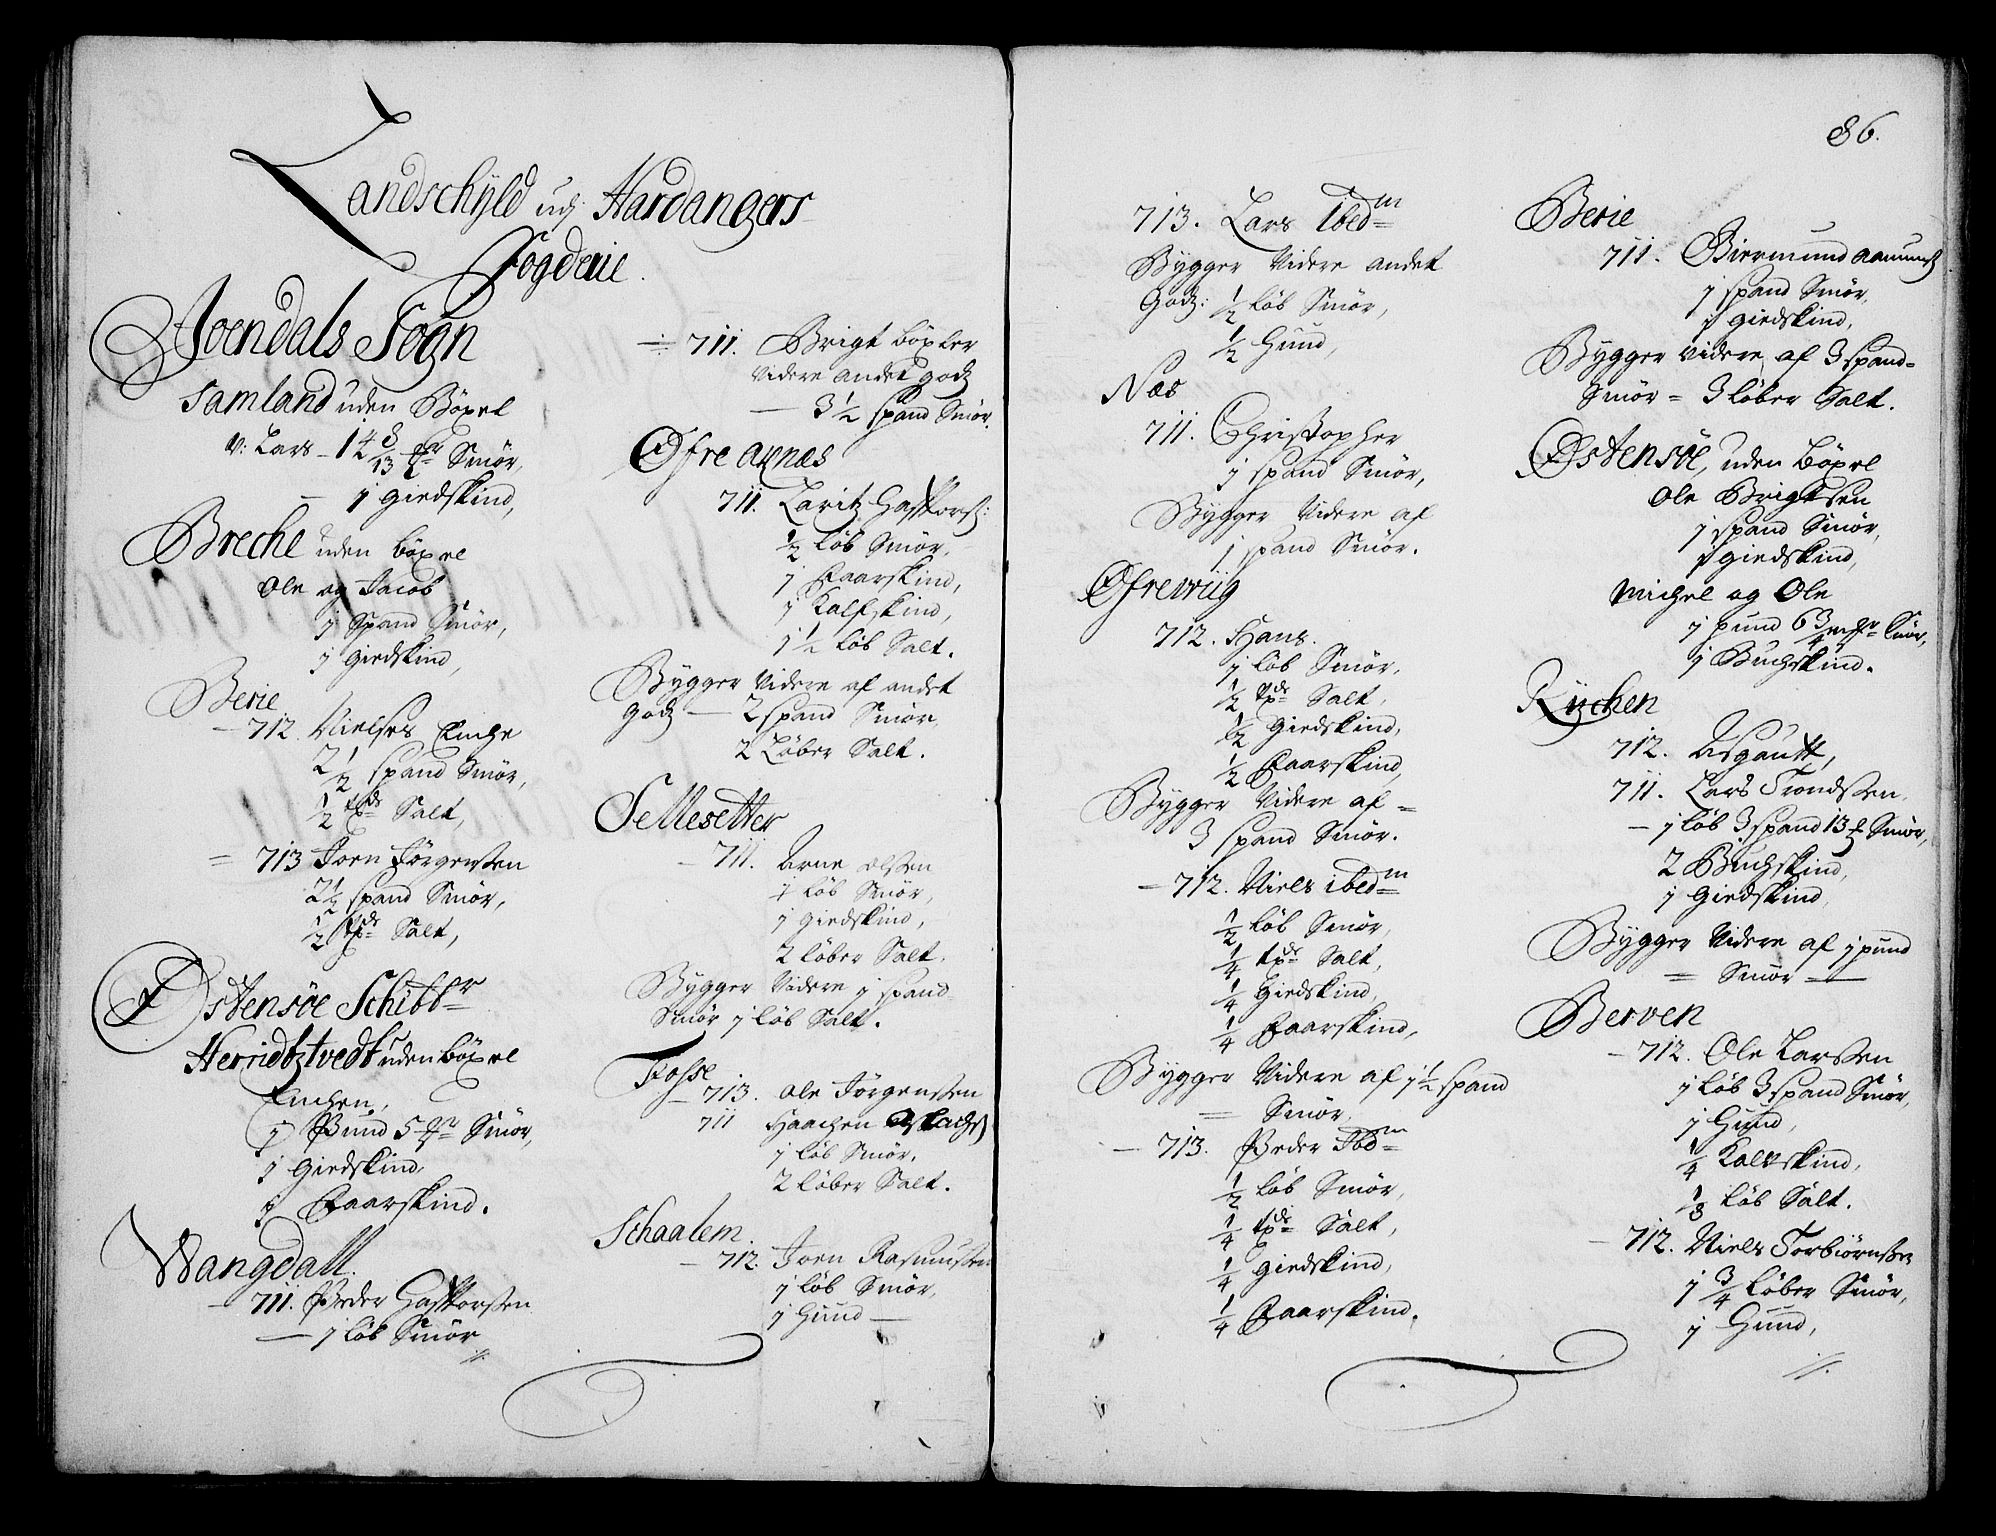 Landschyld udj Hardangers
Fogderie.
Joendals Sogn
Samland uden Böxel
v: Lars – 14 8/13 Smör,
– 1 Giedskind,
Breche uden böxel
Ole og Jacob
1 Spand Smör,
1 Giedskind,
Berie
– 712. Nielses Enche
2 1/2 spand Smör,
1/2 Salt,
= 713 Joen Jörgenssen
2 1/2 spand Smör,
1/2 Salt,
Østensöe Schibbr
Herridtztvedt uden böxel
Enchen,
1 Pund 5 Smör,
1 Giedskind,
1 Faarskind.
Wangdall.
– 711. Peder Haftorssen
– 1 löb Smör
– 711. Brigt böxler
videre andet godz
– 3 1/2 spand Smör.
Øfre Axnæs
711. Laritz Haftorss:
1/2 löb Smör,
1 Faarskind,
1 Kalfskind,
1 1/2 löb Salt.
Bygger Videre af andet
Godz – 2 spand Smör
2 Löber Salt.
Sellesetter
– 711. Arne Olssen
1 löb Smör,
1 Giedskind,
2 löber Salt.
Bygger Videre 1 spand
Smör 1 löb Salt.
Fosse
– 713. Ole Jörgenssen
711 Haachen Aslachs
1 löb Smör,
2 löber Salt.
Schaalem
– 712. Joen Rasmussen
1 löb Smör,
1 Hund –
86.
713. Lars Ibedm
Bygger Videre andet
Godz: 1/2 löb Smör,
1/2 Hund,
Næs
711. Christopher
1 spand Smör,
Bygger Videre af
1 spand Smör.
Øfrewiig
712. Hans.
1 löb Smör,
1/2 Salt,
1/2 Giedskind,
1/2 Faarskind,
Bygger Videre af =
3 spand Smör.
– 712. Niels ibedm
1/2 löb Smör,
1/4 Salt,
1/4 Giedskind,
1/4 Faarskind,
Bygger Videre af 1 1/2 spand
= Smör.
– 713. Peder Ibdm
1/2 löb Smör,
1/4 Salt,
1/4 Giedskind,
1/4 Faarskind.
Berie
711. Biermund Aamunds
1 spand Smör,
1 giedskind,
Bygger videre af 3 spand=
Smör = 3 löber Salt.
Østensöe, uden Böxel
Ole Brigtsen
1 spand Smör,
1 giedskind,
Michel og Ole
1 pund 6 3/4 Smör,
1 Buchskind.
Kychen
712. Asgautt,
711. Lars Trondssen
– 1 löb 3 spand 13 Smör,
2 Buchskind,
1 Giedskind,
Bygger Videre af 1 pund
= Smör –
Berven
– 712. Ole Larssen
1 löb 3 spand Smör,
1 Hund,
1/4 Kalvskind,
1/3 löb Salt.
– 712. Niels Torbiörnssen
1 3/4 löber Smör,
1 Hund,